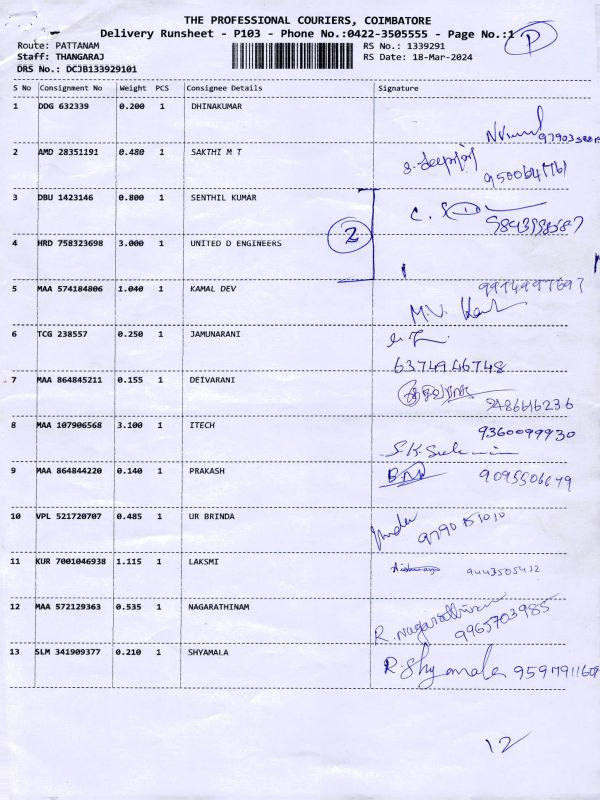 THE PROFESSIONAL COURIERS, COIMBATORE
Delivery Runsheet - P103 - Phone No.:0422-3505555 - Page No.:1 P
Route: PATTANAM RS No.: 1339291
Staff: THANGARAJ RS Date: 18-Mar-2024
DRS No.: DCJB133929101
S No Consignment No Weight PCS Consignee Details Signature
1 DDG 632339 0.200 1 DHINAKUMAR
2 AMD 28351191 0.480 1 SAKTHI M T
9500647761
3 DBU 1423146 0.800 1 SENTHIL KUMAR
2
4 HRD 758323698 3.000 1 UNITED D ENGINEERS
5 MAA 574184806 1.040 1 KAMAL DEV
M.V.
6 TCG 238557 0.250 1 JAMUNARANI
6374946748
7 MAA 864845211 0.155 1 DEIVARANI
9486616236
8 MAA 107906568 3.100 1 ITECH 9360099930
9 MAA 864844220 0.140 1 PRAKASH 9095506679
10 VPL 521720707 0.485 1 UR BRINDA
11 KUR 7001046938 1.115 1 LAKSMI 9443505412
12 MAA 572129363 0.535 1 NAGARATHINAM R. Nagarathinam
9965703985
13 SLM 341909377 0.210 1 SHYAMALA R. Shyamala
12